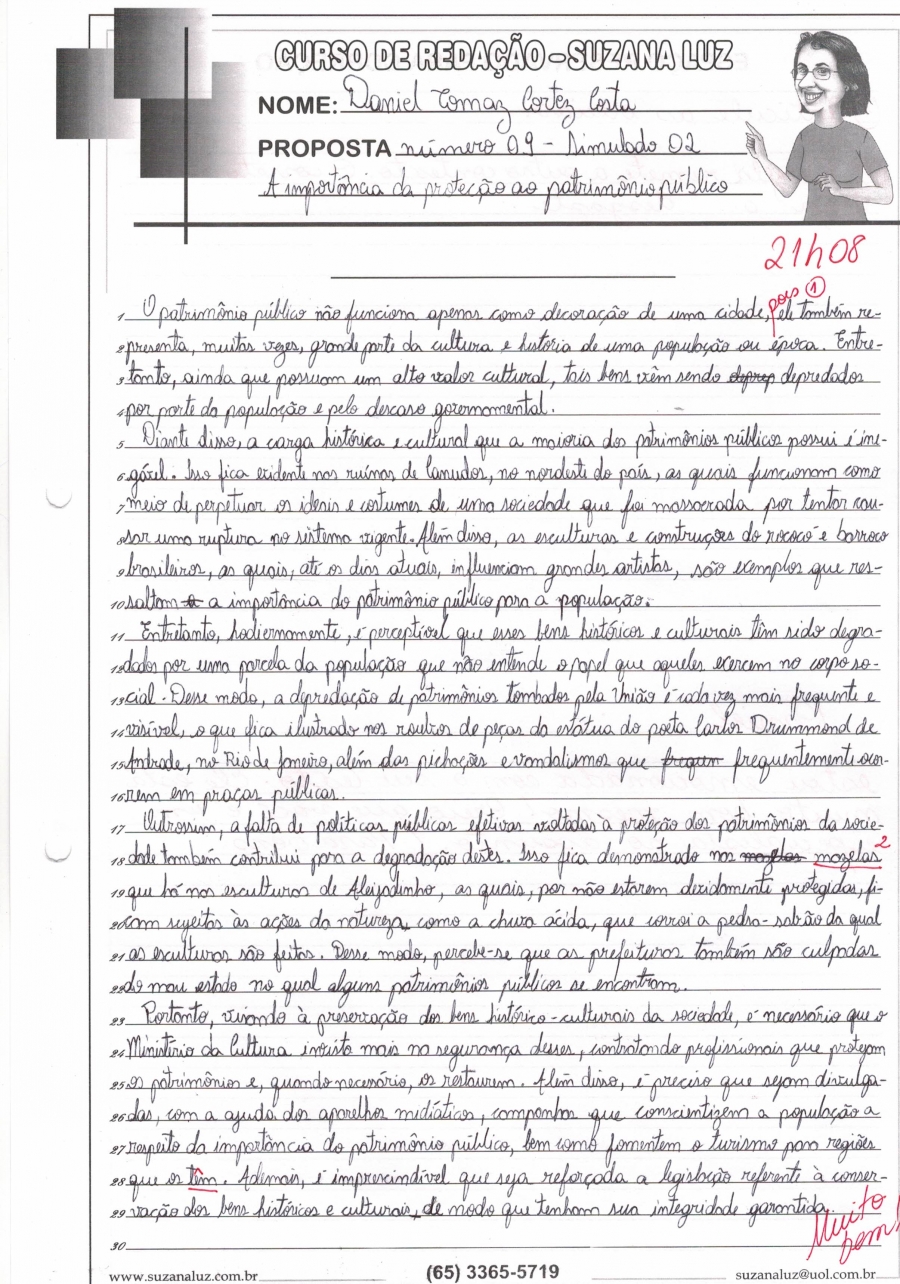 CURSO DE REDAÇÃO - SUZANA LUZ
NOME: Daniel Tomaz Cortez Costa
PROPOSTA número 09 - Simulado 02
A importância da proteção ao patrimônio público
21h08
pois 1
1 O patrimônio público não funciona apenas como decoração de uma cidade, ele também re-
2 presenta, muitas vezes, grande parte da cultura e história de uma população ou época. Entre-
3 tanto, ainda que possuam um alto valor cultural, tais bens vêm sendo deprep depredados
4 por parte da população e pelo descaso governamental.
5 Diante disso, a carga histórica e cultural que a maioria dos patrimônios públicos possui é ine-
6 gável. Isso fica evidente nas ruínas de Canudos, no nordeste do país, as quais funcionam como
7 meio de perpetuar os ideais e costumes de uma sociedade que foi massacrada por tentar cau-
8 sar uma ruptura no sistema vigente. Além disso, as esculturas e construções do rococó e barroco
9 brasileiros, as quais, até os dias atuais, influenciam grandes artistas, são exemplos que res-
10 saltam a a importância do patrimônio público para a população.
11 Entretanto, hodiernamente, é perceptível que esses bens históricos e culturais têm sido degra-
12 dados por uma parcela da população que não entende o papel que aqueles exercem no corpo so-
13 cial. Desse modo, a depredação de patrimônios tombados pela União é cada vez mais frequente e
14 visível, o que fica ilustrado nos roubos de peças da estátua do poeta Carlos Drummond de
15 Andrade, no Rio de Janeiro, além das pichações e vandalismos que frequen frequentemente ocor-
16 rem em praças públicas.
17 Outrossim, a falta de políticas públicas efetivas voltadas à proteção dos patrimônios da socie-
18 dade também contribui para a degradação destes. Isso fica demonstrado nas mazelas 2
19 que há nas esculturas de Aleijadinho, as quais, por não estarem devidamente protegidas, fi-
20 cam sujeitas às ações da natureza, como a chuva ácida, que corrói a pedra-sabão da qual
21 as esculturas são feitas. Desse modo, percebe-se que as prefeituras também são culpadas
22 do mau estado no qual alguns patrimônios públicos se encontram.
23 Portanto, visando à preservação dos bens histórico-culturais da sociedade, é necessário que o
24 Ministério da Cultura invista mais na segurança desses, contratando profissionais que protejam
25 os patrimônios e, quando necessário, os restaurem. Além disso, é preciso que sejam divulga-
26 das, com a ajuda dos aparelhos midiáticos, campanhas que conscientizem a população a
27 respeito da importância do patrimônio público, bem como fomentem o turismo para regiões
28 que os têm. Ademais, é imprescindível que seja reforçada a legislação referente à conser-
29 vação dos bens históricos e culturais, de modo que tenham sua integridade garantida.
Muito bem!
30
www.suzanaluz.com.br (65) 3365-5719 suzanaluz@uol.com.br